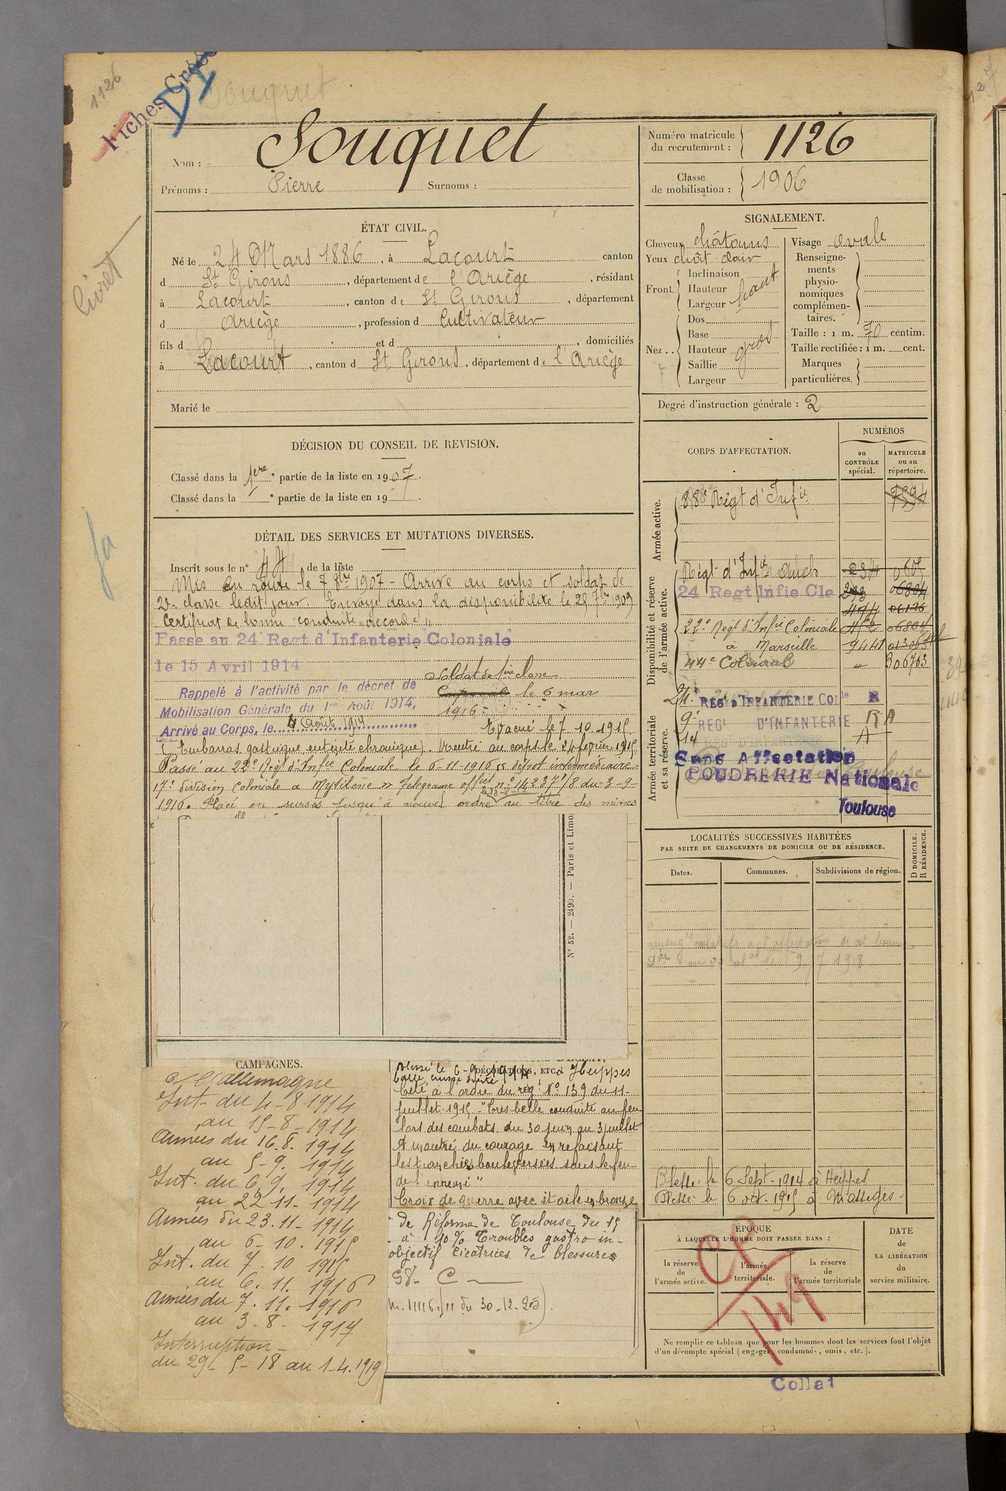 1126
Fiches Croe
DI
Souquet
Livret
Ja
Nom : Souquet
Prénoms : Pierre Surnoms :
Numéro matricule du recrutement : 1126
Classe de mobilisation : 1906
ÉTAT CIVIL.
Né le 24 Mars 1886, à Lacourt canton
d St Girons, département de l'Ariège, résidant
à Lacourt, canton de St Girons, département
d Ariège, profession d Cultivateur
fils d et d , domiciliés
à Lacourt, canton d St Girons, département de l'Ariège
Marié le
SIGNALEMENT.
Cheveux châtains
Yeux chât. clair
Front. Inclinaison
Hauteur haut
Largeur
Nez .. Dos
Base
Hauteur gros
Saillie
Largeur
Visage ovale
Renseignements physionomiques complémentaires.
Taille : 1 m. 70 centim.
Taille rectifiée : 1 m. cent.
Marques particulières.
Degré d'instruction générale : 2
DÉCISION DU CONSEIL DE REVISION.
Classé dans la 1ere partie de la liste en 1907.
Classé dans la ° partie de la liste en 19
DÉTAIL DES SERVICES ET MUTATIONS DIVERSES.
Inscrit sous le n° 44 de la liste
Mis en route le 7 8bre 1907 - Arrivé au corps et soldat de
2e classe ledit jour. Envoyé dans la disponibilité le 25 7bre 1909
Certificat de bonne conduite accordé
Passé au 24 Regt d'Infanterie Coloniale
le 15 Avril 1914
Rappelé à l'activité par le décret de
Mobilisation Générale du 1er Août 1914,
Arrivé au Corps, le 4 Août 1914
Soldat de 1ere classe
Caporal le 6 mars
1916
Evacué le 7.10.1915
(Embarras gastrique entérite chronique). Rentré au corps le 24 février 1915
Passé au 22e Régt d'Infie Coloniale le 6-11-1916 dépôt intermédiaire
17e division coloniale à Mytilène Télégrame offiel n° 14837/8 du 3-9-
1916. Placé en sursis jusqu'à nouvel ordre au titre des mines
N° 52. — 2490. — Paris et Limo
CORPS D'AFFECTATION.
NUMÉROS
au CONTRÔLE spécial.
MATRICULE ou au répertoire.
Armée active.
88e Régt d'Infie
Disponibilité et réserve de l'armée active.
Régt d'Infie Auch
24 Regt Infie Cle
22e Régt d'Infie Coloniale
à Marseille
44e Colonial
Armée territoriale et sa réserve.
24. REGt D'INFANTERIE COLle R
9e REGt D'INFANTERIE RA
14 A
Sans Affectation
POUDRERIE Nationale
Toulouse
LOCALITÉS SUCCESSIVES HABITÉES
PAR SUITE DE CHANGEMENTS DE DOMICILE OU DE RÉSIDENCE.
Dates. Communes. Subdivisions de région. D DOMICILE. R RÉSIDENCE.
Blessé le 6 Sept. 1914 à Heippes
Blessé le 6 oct. 1915 à Massiges
CAMPAGNES.
C/ l'allemagne
Int. du 4-8 1914
au 15-8-1914
Armées du 16.8.1914
au 5-9. 1914
Int. du 6.9. 1914
au 22 11. 1914
Armées du 23.11. 1914
au 6.10.1915
Int. du 7.10 1915
au 6.11.1916
Armées du 7.11.1916
au 3.8.1917
Interruption
du 29-5-18 au 1-4.1919
DÉCORATIONS, ETC.
Blessé le 6-9-1914 à Heippes
balle cuisse droite
Cité à l'ordre du régt N° 139 du 11-
juillet 1915 "Très belle conduite au feu
lors des combats du 30 juin au 3 juillet
A montré du courage en refaisant
les tranchées bouleversées sous le feu
de l'ennemi"
Croix de guerre avec étoile en bronze
de Réforme de Toulouse du 15
à 10% Troubles gastro in-
objectif cicatrices de blessures
m. 1116
ÉPOQUE
À LAQUELLE L'HOMME DOIT PASSER DANS :
la réserve de l'armée active. l'armée territoriale. la réserve de l'armée territoriale
DATE de LA LIBÉRATION du service militaire.
CP
149
Ne remplir ce tableau que pour les hommes dont les services font l'objet
d'un décompte spécial (engagés, condamnés, omis, etc.).
Collat